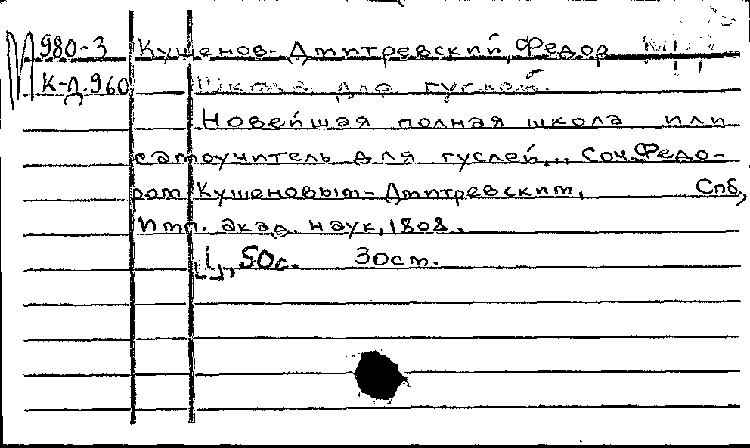 980-3 Кушенов-Дмитревский, Федор
К-Д.960 Школа для гуслей.
Новейшая полная школа или
самоучитель для гуслей... Соч. Федо-
ром Кушеновым-Дмитревским, Спб,
Имп. акад. наук, 1808.
50с. 30см.